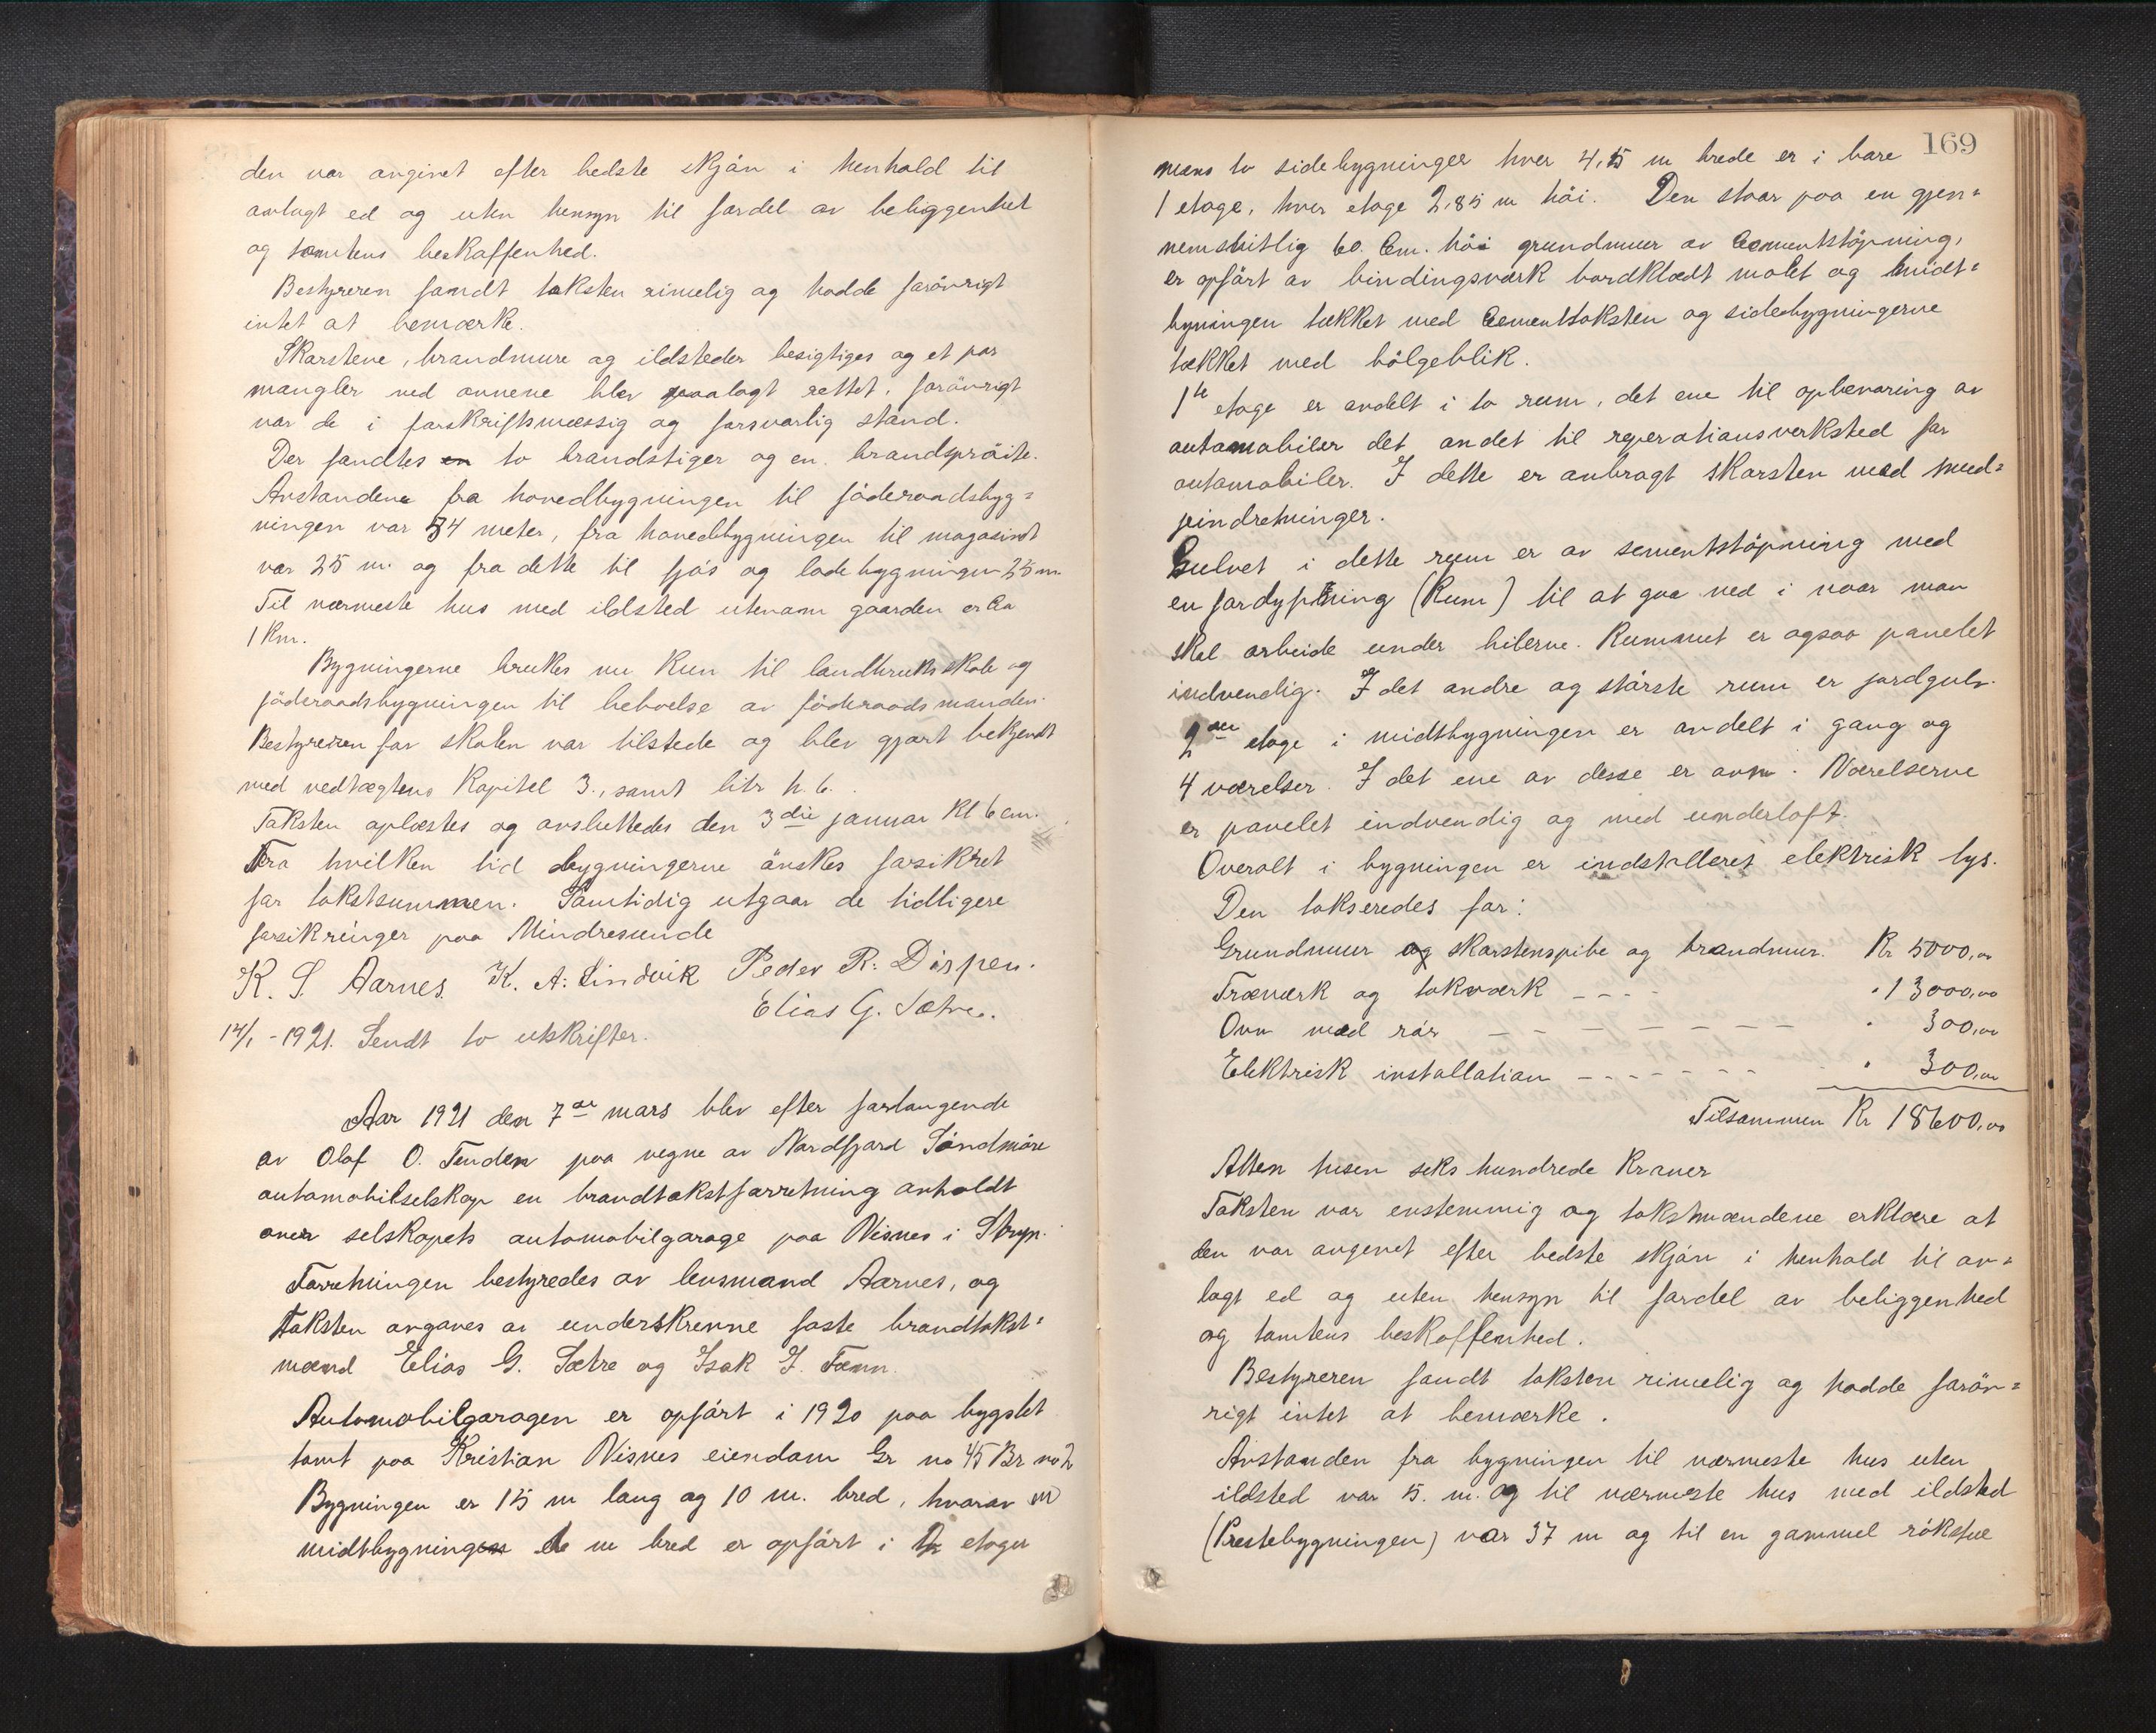 den var angivet efter bedste skjön i henhold til
avlagt ed og uten hensyn til fordel av beliggenhet
og tomtens beskaffenhed.
Bestyreren fandt taksten rimelig og hadde forövrigt
intet at bemærke.
Skorstene, brandmure og ildsteder besigtiges og et par
mangler ved ovnene blev paalagt rettet, forövrigt
var de i forskriftsmæssig og forsvarlig stand.
Der fandtes en to brandstiger og en brandspröite.
Avstandene fra hovedbygningen til föderaadsbyg=
ningen var 34 meter, fra hovedbygningen til magasinet
var 25 m. og fra dette til fjös og ladebygningen 25 m.
Til nærmeste hus med ildsted utenom gaarden er Ca
1 Km.
Bygningerne brukes nu kun til landbruksskole og
föderaadsbygningen til beboelse av föderaadsmanden.
Bestyreren for skolen var tilstede og blev gjort bekjendt
med vedtægtens Kapitel 3., samt litr h. 6.
Taksten oplæstes og avsluttedes den 3die januar Kl 6 em.
Fra hvilken tid bygningerne önskes forsikret
for takstsummen. Samtidig utgaar de tidligere
forsikringer paa Mindresunde
K. S. Aarnes. K. A. Lindvik Peder R. Dispen.
Elias G. Sætre.
14/1 - 1921. Sendt to utskrifter.
Aar 1921 den 7de mars blev efter forlangende
av Olaf O. Tenden paa vegne av Nordfjord Söndmöre
automobilselskap en brandtakstforretning avholdt
over selskapets automobilgarage paa Visnes i Stryn.
Forretningen bestyredes av lensmand Aarnes, og
taksten avgaves av underskrevne faste brandtakst=
mænd Elias G. Sætre og Isak J. Tonn.
Automobilgaragen er opfört i 1920 paa bygslet
tomt paa Kristian Visnes eiendom Gr no 45 Br no 2
Bygningen er 15 m lang og 10 m. bred, hvorav
midtbygningen m bred er opfört i 2 etager
169
mens to sidebygninger hver 4,15 m brede er i bare
1 etage, hver etage 2,85 m höi. Den staar paa en gjen=
nemsnitlig 60. Cm. höi grundmuur av Cementstöpning,
er opfört av bindingsværk bordklædt malet og midt=
bygningen tækket med Cementtaksten og sidebygningerne
tækket med bölgeblik.
1te etage er avdelt i to rum, det ene til opbevaring av
automobiler det andet til reperationsverksted for
automobiler. I dette er anbragt skorsten med smed=
jeindretninger.
Gulvet i dette rum er av sementstöpning med
en fordypning (Rum) til at gaa ned i naar man
skal arbeide under bilerne. Rummet er ogsaa panelet
indvendig. I det andre og störste rum er jordgulv.
2den etage i midtbygningen er avdelt i gang og
4 værelser. I det ene av desse er ovn. Værelserne
er panelet indvendig og med underloft.
Overalt i bygningen er indstalleret elektrisk lys.
Den takseredes for:
Grundmuur og skorstenspibe og brandmur. Kr 5000,00
Træværk og takværk - - - - " 13000,00
Ovn med rör - - - - - - - " 300,00
Elektrisk installation - - - - - - - " 300,00
Tilsammen Kr 18600,00
Atten tusen seks hundrede Kroner
Taksten var enstemmig og takstmændene erklære at
den var angevet efter bedste skjön i henhold til av=
lagt ed og uten hensyn til fordel av beliggenhed
og tomtens beskaffenhed.
Bestyreren fandt taksten rimelig og hadde forön=
rigt intet at bemærke.
Avstanden fra bygningen til nærmeste hus uten
ildsted var 5. m. og til nærmeste hus med ildsted
(Prestebygningen) var 37 m og til en gammel rökstue